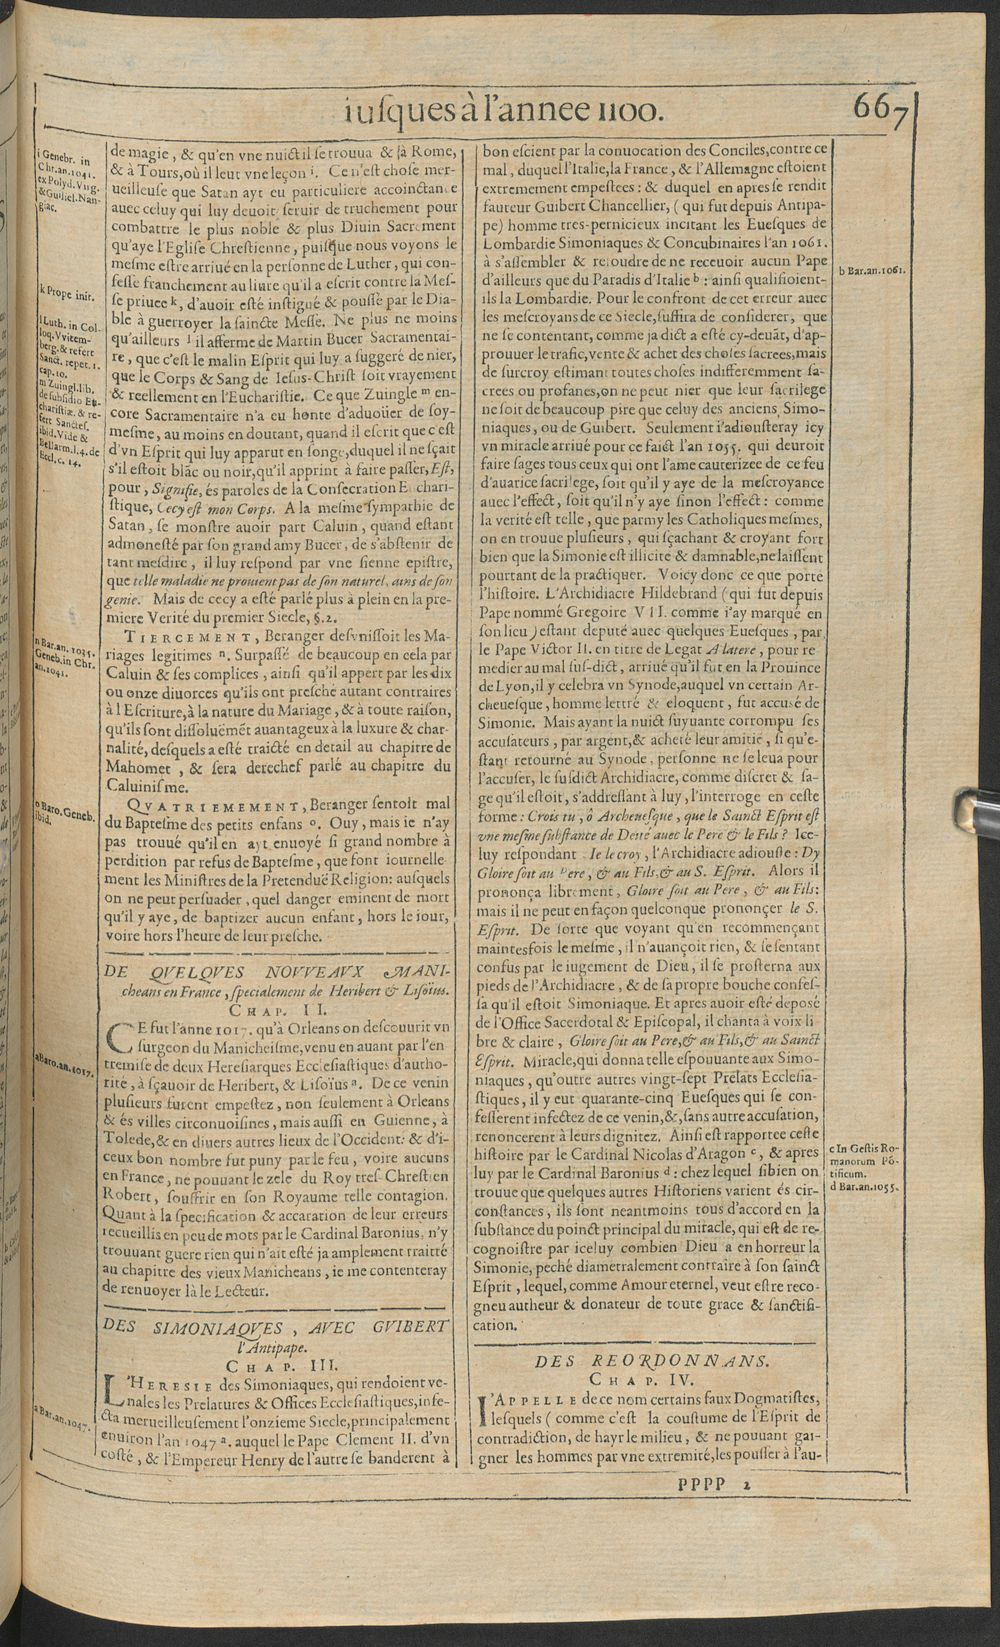 iusques à l'annee 1100.
667
i Genebr. in
Chr.an.1041.
ex Polyd.Virg.
& Guiliel.Nan-
giac.
k Prope init.
l Luth. in Col-
loq.Vvitem-
berg.& refert
Sanct. repet.1.
cap.10.
m Zuingl.lib.
de subsidio Eu-
charistiæ. & re-
fert Sanctes.
ibid. Vide &
Bellarm.l.4.de
Eccl.c.14.
n Bar.an.1035.
Geneb.in Chr.
an.1041.
o Baro.Geneb.
ibid.
a Baro.an.1017.
a Bar.an.1047.
de magie, & qu'en vne nuict il se trouua & là Rome,
& à Tours, où il leut vne leçon i. Ce n'est chose mer-
ueilleuse que Satan ayt eu particuliere accoinctance
auec celuy qui luy deuoit seruir de truchement pour
combattre le plus noble & plus Diuin Sacrement
qu'aye l'Eglise Chrestienne, puisque nous voyons le
mesme estre arriué en la personne de Luther, qui con-
fesse franchement au liure qu'il a escrit contre la Mes-
se priuee k, d'auoir esté instigué & poussé par le Dia-
ble à guerroyer la saincte Messe. Ne plus ne moins
qu'ailleurs l il afferme de Martin Bucer Sacramentai-
re, que c'est le malin Esprit qui luy a suggeré de nier,
que le Corps & Sang de Iesus-Christ soit vrayement
& reellement en l'Eucharistie. Ce que Zuingle m en-
core Sacramentaire n'a eu honte d'aduoüer de soy-
mesme, au moins en doutant, quand il escrit que c'est
d'vn Esprit qui luy apparut en songe, duquel il ne sçait
s'il estoit blãc ou noir, qu'il apprint à faire passer, Est,
pour, Signifie, és paroles de la Consecration Euchari-
stique, Cecy est mon Corps. A la mesme sympathie de
Satan, se monstre auoir part Caluin, quand estant
admonesté par son grand amy Bucer, de s'abstenir de
tant mesdire, il luy respond par vne sienne epistre,
que telle maladie ne prouient pas de son naturel, ains de son
genie. Mais de cecy a esté parlé plus à plein en la pre-
miere Verité du premier Siecle, §.2.
TIERCEMENT, Beranger desvnissoit les Ma-
riages legitimes n. Surpassé de beaucoup en cela par
Caluin & ses complices, ainsi qu'il appert par les dix
ou onze diuorces qu'ils ont presché autant contraires
à l'Escriture, à la nature du Mariage, & à toute raison,
qu'ils sont dissoluëmẽt auantageux à la luxure & char-
nalité, desquels a esté traicté en detail au chapitre de
Mahomet, & sera derechef parlé au chapitre du
Caluinisme.
QVATRIEMEMENT, Beranger sentoit mal
du Baptesme des petits enfans o. Ouy, mais ie n'ay
pas trouué qu'il en ayt enuoyé si grand nombre à
perdition par refus de Baptesme, que font iournelle-
ment les Ministres de la Pretenduë Religion: ausquels
on ne peut persuader, quel danger eminent de mort
qu'il y aye, de baptizer aucun enfant, hors le iour,
voire hors l'heure de leur presche.
DE QVELQVES NOVVEAVX MANI-
cheans en France, specialement de Heribert & Lisoius.
CHAP. II.
CE fut l'anne 1017. qu'à Orleans on descouurit vn
surgeon du Manicheisme, venu en auant par l'en-
tremise de deux Heresiarques Ecclesiastiques d'autho-
rité, à sçauoir de Heribert, & Lisoïus a. De ce venin
plusieurs furent empestez, non seulement à Orleans
& és villes circonuoisines, mais aussi en Guienne, à
Tolede, & en diuers autres lieux de l'Occident: & d'i-
ceux bon nombre fut puny par le feu, voire aucuns
en France, ne pouuant le zele du Roy tres-Chrestien
Robert, souffrir en son Royaume telle contagion.
Quant à la specification & accaration de leur erreurs
recueillis en peu de mots par le Cardinal Baronius, n'y
trouuant guere rien qui n'ait esté ja amplement traitté
au chapitre des vieux Manicheans, ie me contenteray
de renuoyer là le Lecteur.
DES SIMONIAQVES, AVEC GVIBERT
l'Antipape.
CHAP. III.
L'HERESIE des Simoniaques, qui rendoient ve-
nales les Prelatures & Offices Ecclesiastiques, infe-
cta merueilleusement l'onzieme Siecle, principalement
enuiron l'an 1047 a. auquel le Pape Clement II. d'vn
costé, & l'Empereur Henry de l'autre se banderent à
bon escient par la conuocation des Conciles, contre ce
mal, duquel l'Italie, la France, & l'Allemagne estoient
extremement empestees: & duquel en apres se rendit
fauteur Guibert Chancellier, (qui fut depuis Antipa-
pe) homme tres-pernicieux incitant les Euesques de
Lombardie Simoniaques & Concubinaires l'an 1061.
à s'assembler & resoudre de ne receuoir aucun Pape
d'ailleurs que du Paradis d'Italie b: ainsi qualifioient-
ils la Lombardie. Pour le confront de cet erreur auec
les mescroyans de ce Siecle, suffira de considerer, que
ne se contentant, comme ja dict a esté cy-deuãt, d'ap-
prouuer le trafic, vente & achet des choses sacrees, mais
de surcroy estimant toutes choses indifferemment sa-
crees ou profanes, on ne peut nier que leur sacrilege
ne soit de beaucoup pire que celuy des anciens Simo-
niaques, ou de Guibert. Seulement i'adiousteray icy
vn miracle arriué pour ce faict l'an 1055. qui deuroit
faire sages tous ceux qui ont l'ame cauterizee de ce feu
d'auarice sacrilege, soit qu'il y aye de la mescroyance
auec l'effect, soit qu'il n'y aye sinon l'effect: comme
la verité est telle, que parmy les Catholiques mesmes,
on en trouue plusieurs, qui sçachant & croyant fort
bien que la Simonie est illicite & damnable, ne laissent
pourtant de la practiquer. Voicy donc ce que porte
l'histoire. L'Archidiacre Hildebrand (qui fut depuis
Pape nommé Gregoire VII. comme i'ay marqué en
son lieu) estant deputé auec quelques Euesques, par
le Pape Victor II. en titre de Legat A latere, pour re-
medier au mal sus-dict, arriué qu'il fut en la Prouince
de Lyon, il y celebra vn Synode, auquel vn certain Ar-
cheuesque, homme lettré & eloquent, fut accusé de
Simonie. Mais ayant la nuict suyuante corrompu ses
accusateurs, par argent, & acheté leur amitié, si qu'e-
stant retourné au Synode, personne ne se leua pour
l'accuser, le susdict Archidiacre, comme discret & sa-
ge qu'il estoit, s'addressant à luy, l'interroge en ceste
forme: Crois tu, ô Archeuesque, que le Sainct Esprit est
vne mesme substance de Deité auec le Pere & le Fils? Ice-
luy respondant. Ie le croy, l'Archidiacre adiouste: Dy
Gloire soit au Pere, & au Fils, & au S. Esprit. Alors il
prononça librement, Gloire soit au Pere, & au Fils:
mais il ne peut en façon quelconque prononcer le S.
Esprit. De sorte que voyant qu'en recommençant
maintesfois le mesme, il n'auançoit rien, & se sentant
confus par le iugement de Dieu, il se prosterna aux
pieds de l'Archidiacre, & de sa propre bouche confes-
sa qu'il estoit Simoniaque. Et apres auoir esté deposé
de l'Office Sacerdotal & Episcopal, il chanta à voix li-
bre & claire, Gloire soit au Pere, & au Fils, & au Sainct
Esprit. Miracle, qui donna telle espouuante aux Simo-
niaques, qu'outre autres vingt-sept Prelats Ecclesia-
stiques, il y eut quarante-cinq Euesques qui se con-
fesserent infectez de ce venin, &, sans autre accusation,
renoncerent à leurs dignitez. Ainsi est rapportee ceste
histoire par le Cardinal Nicolas d'Aragon c, & apres
luy par le Cardinal Baronius d: chez lequel si bien on
trouue que quelques autres Historiens varient és cir-
constances, ils sont neantmoins tous d'accord en la
substance du poinct principal du miracle, qui est de re-
cognoistre par iceluy combien Dieu a en horreur la
Simonie, peché diametralement contraire à son sainct
Esprit, lequel, comme Amour eternel, veut estre reco-
gneu autheur & donateur de toute grace & sanctifi-
cation.
DES REORDONNANS.
CHAP. IV.
I'APPELLE de ce nom certains faux Dogmatistes,
lesquels (comme c'est la coustume de l'Esprit de
contradiction, de hayr le milieu, & ne pouuant gai-
gner les hommes par vne extremité, les pousser à l'au-
b Bar.an.1061.
c In Gestis Ro-
manorum Põ-
tificum.
d Bar.an.1055.
PPPP 2